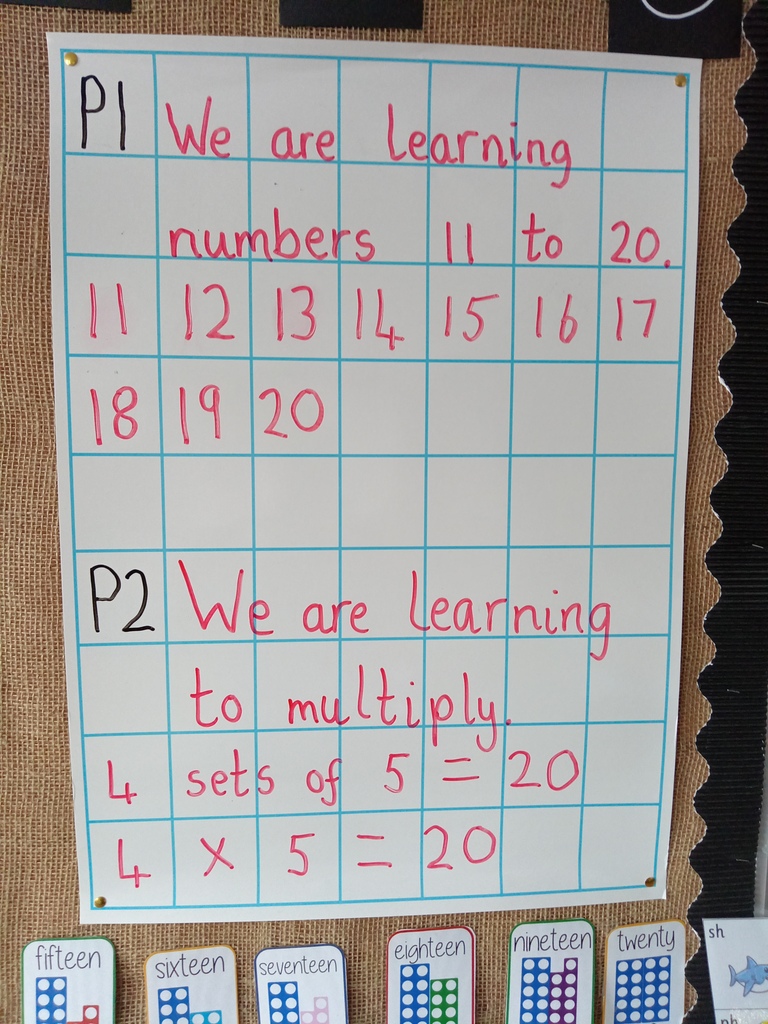 P1 We are learning
numbers 11 to 20.
11 12 13 14 15 16 17
18 19 20
P2 We are learning
to multiply.
4 sets of 5 = 20
4 x 5 = 20
fifteen sixteen seventeen eighteen nineteen twenty
sh